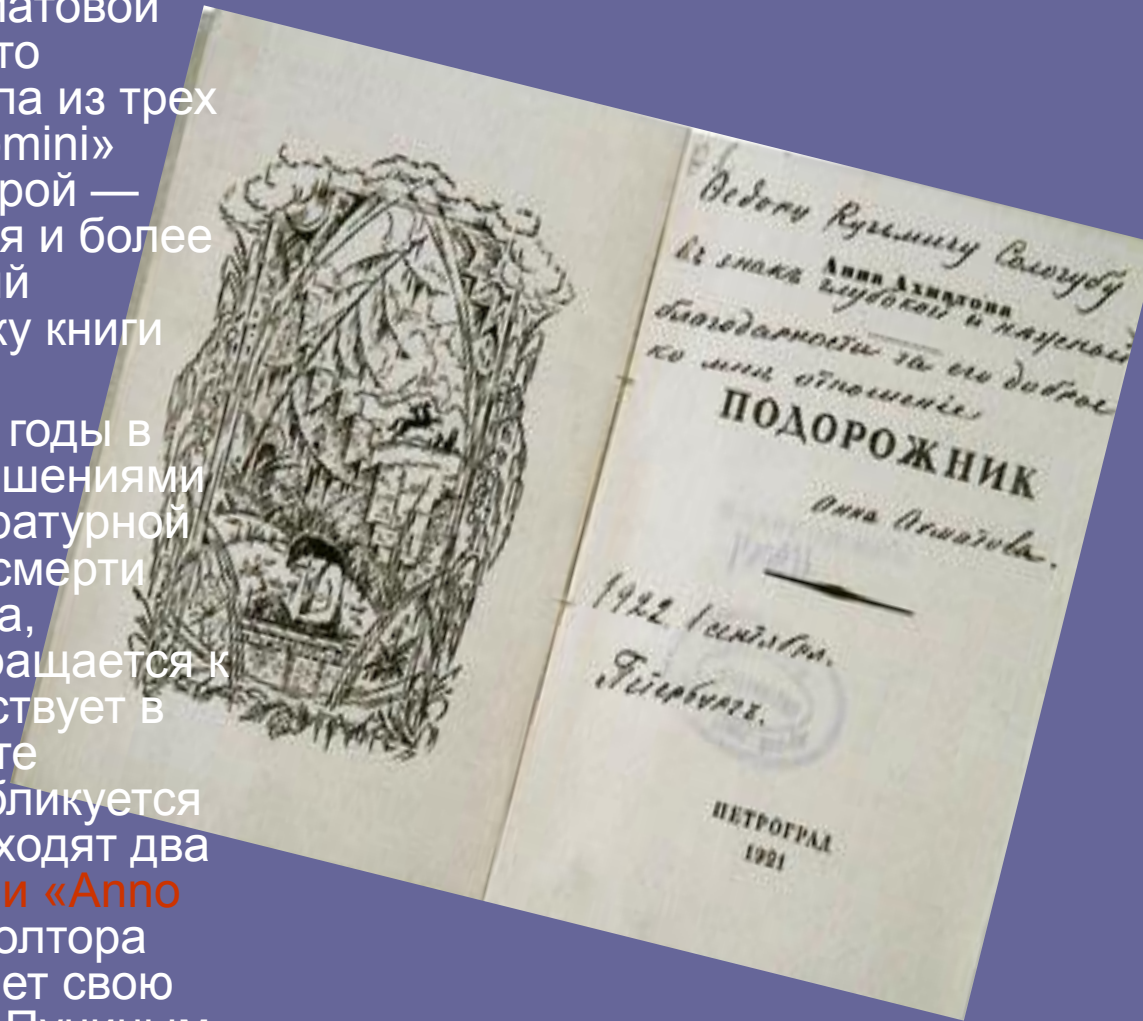 матовой
то
ла из трех
mini»
рой —
я и более
ий
ку книги
годы в
шениями
ратурной
смерти
а,
ращается к
ствует в
те
бликуется
ходят два
и «Anno
олтора
ет свою
Пуниным
Федору Кузьмичу Сологубу
Анна Ахматова
въ знакъ глубокой и
благодарности за его доброе
ко мнѣ отношенiе
ПОДОРОЖНИК
Анна Ахматова.
1922 1 сентября.
Петербургъ.
ПЕТРОГРАД
1921